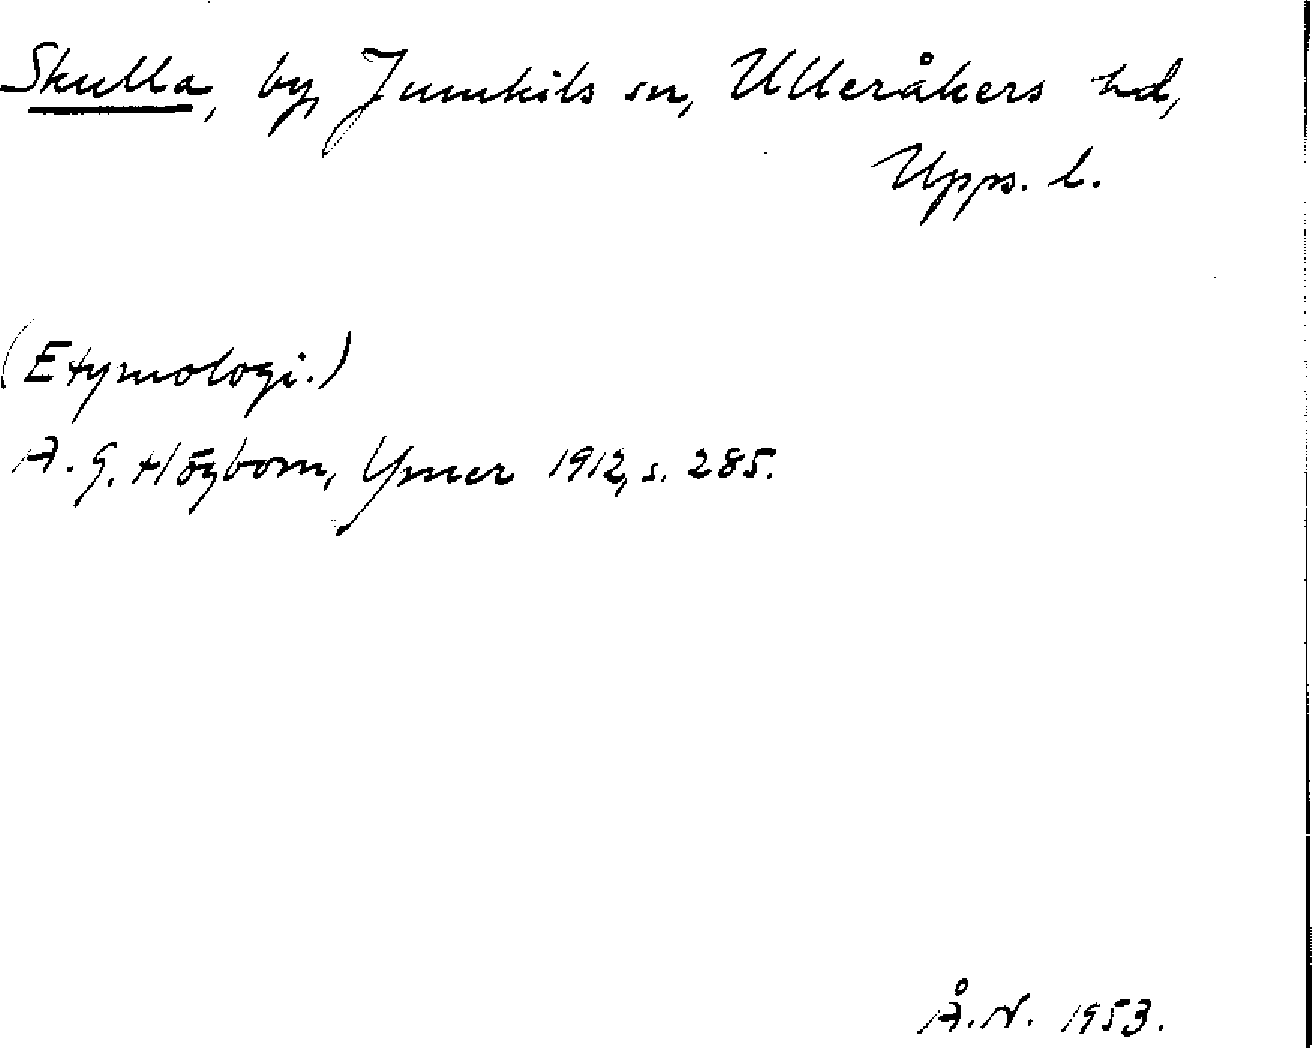 Skulla, by, Jumkils sn, Ulleråkers hd,
Upps. l.
(Etymologi.)
A. G. Högbom, Ymer 1912, s. 285.
Å. N. 1953.